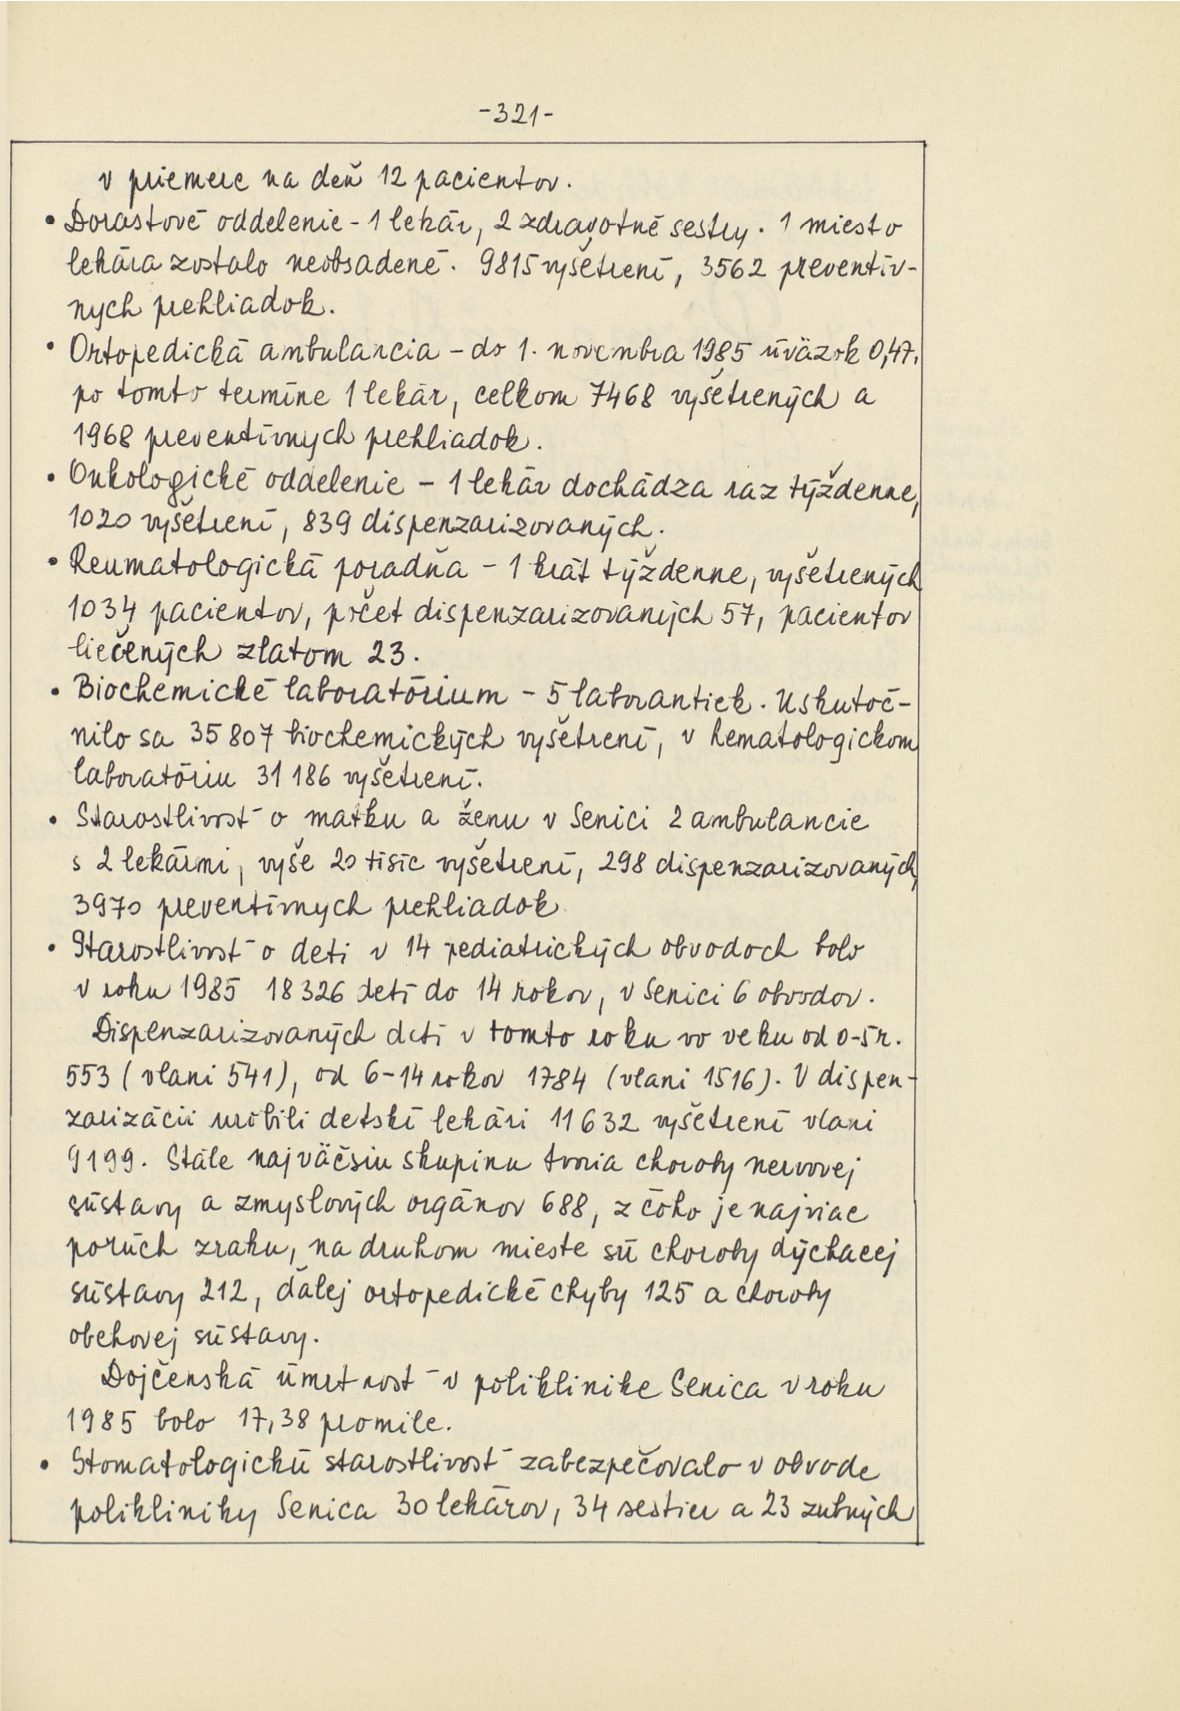 -321-
v priemere na deň 12 pacientov.
• Dorastové oddelenie - 1 lekár, 2 zdravotné sestry. 1 miesto
lekára zostalo neobsadené. 9815 vyšetrení, 3562 preventív-
nych prehliadok.
• Ortopedická ambulancia - do 1. novembra 1985 úväzok 0,47,
po tomto termíne 1 lekár, celkom 7468 vyšetrených a
1968 preventívnych prehliadok.
• Onkologické oddelenie - 1 lekár dochádza raz týždenne,
1020 vyšetrení, 839 dispenzarizovaných.
• Reumatologická poradňa - 1 krát týždenne, vyšetrených
1034 pacientov, počet dispenzarizovaných 57, pacientov
liečených zlatom 23.
• Biochemické laboratórium - 5 laborantiek. Uskutoč-
nilo sa 35 807 biochemických vyšetrení, v hematologickom
laboratóriu 31 186 vyšetrení.
• Starostlivosť o matku a ženu v Senici 2 ambulancie
s 2 lekármi, vyše 20 tisíc vyšetrení, 298 dispenzarizovaných,
3970 preventívnych prehliadok
• Starostlivosť o deti v 14 pediatrických obvodoch bolo
v roku 1985 18 326 detí do 14 rokov, v Senici 6 obvodov.
Dispenzarizovaných detí v tomto roku vo veku od 0-5 r.
553 (vlani 541), od 6-14 rokov 1784 (vlani 1516). V dispen-
zarizácii urobili detskí lekári 11 632 vyšetrení vlani
9199. Stále najväčsiu skupinu tvoria choroby nervovej
sústavy a zmyslových orgánov 688, z čoho je najviac
porúch zraku, na druhom mieste sú choroby dýchacej
sústavy 212, ďalej ortopedické chyby 125 a choroby
obehovej sústavy.
Dojčenská úmrtnosť v poliklinike Senica v roku
1985 bolo 17,38 promile.
• Stomatologickú starostlivosť zabezpečovalo v obvode
polikliniky Senica 30 lekárov, 34 sestier a 23 zubných